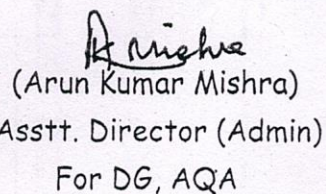 A Mishra
(Arun Kumar Mishra)
Asstt. Director (Admin)
For DG, AQA